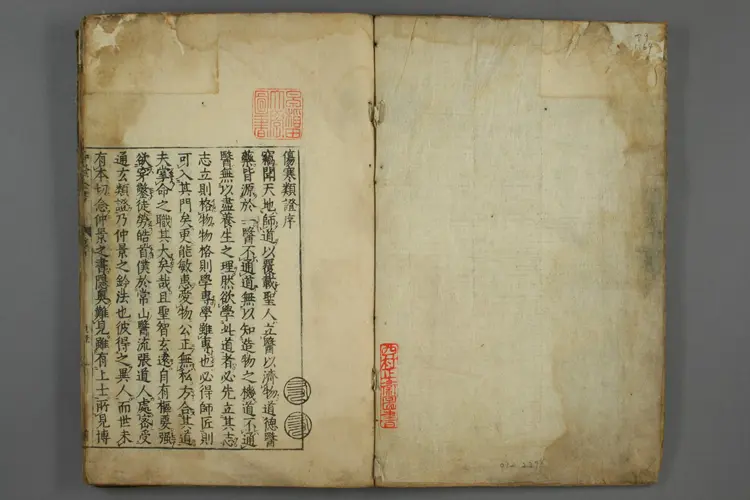 傷寒類證序
竊聞天地師道以覆載聖人立醫以濟物道德醫
藥皆源於一醫不通道無以知造物之機道不通
醫無以盡養生之理然欲學此道者必先立其志
志立則格物物格則學專學雖專也必得師匠則
可入其門矣更能敏惠愛物公正無私方合其道
夫掌命之職其大矣哉且聖智玄遠自有樞要強
欲穿鑿徒勞皓首僕於常山醫流張道人處密受
通玄類證乃仲景之鈐法也彼得之異人而世未
有本切念仲景之書隱奧難見雖有上士所見博